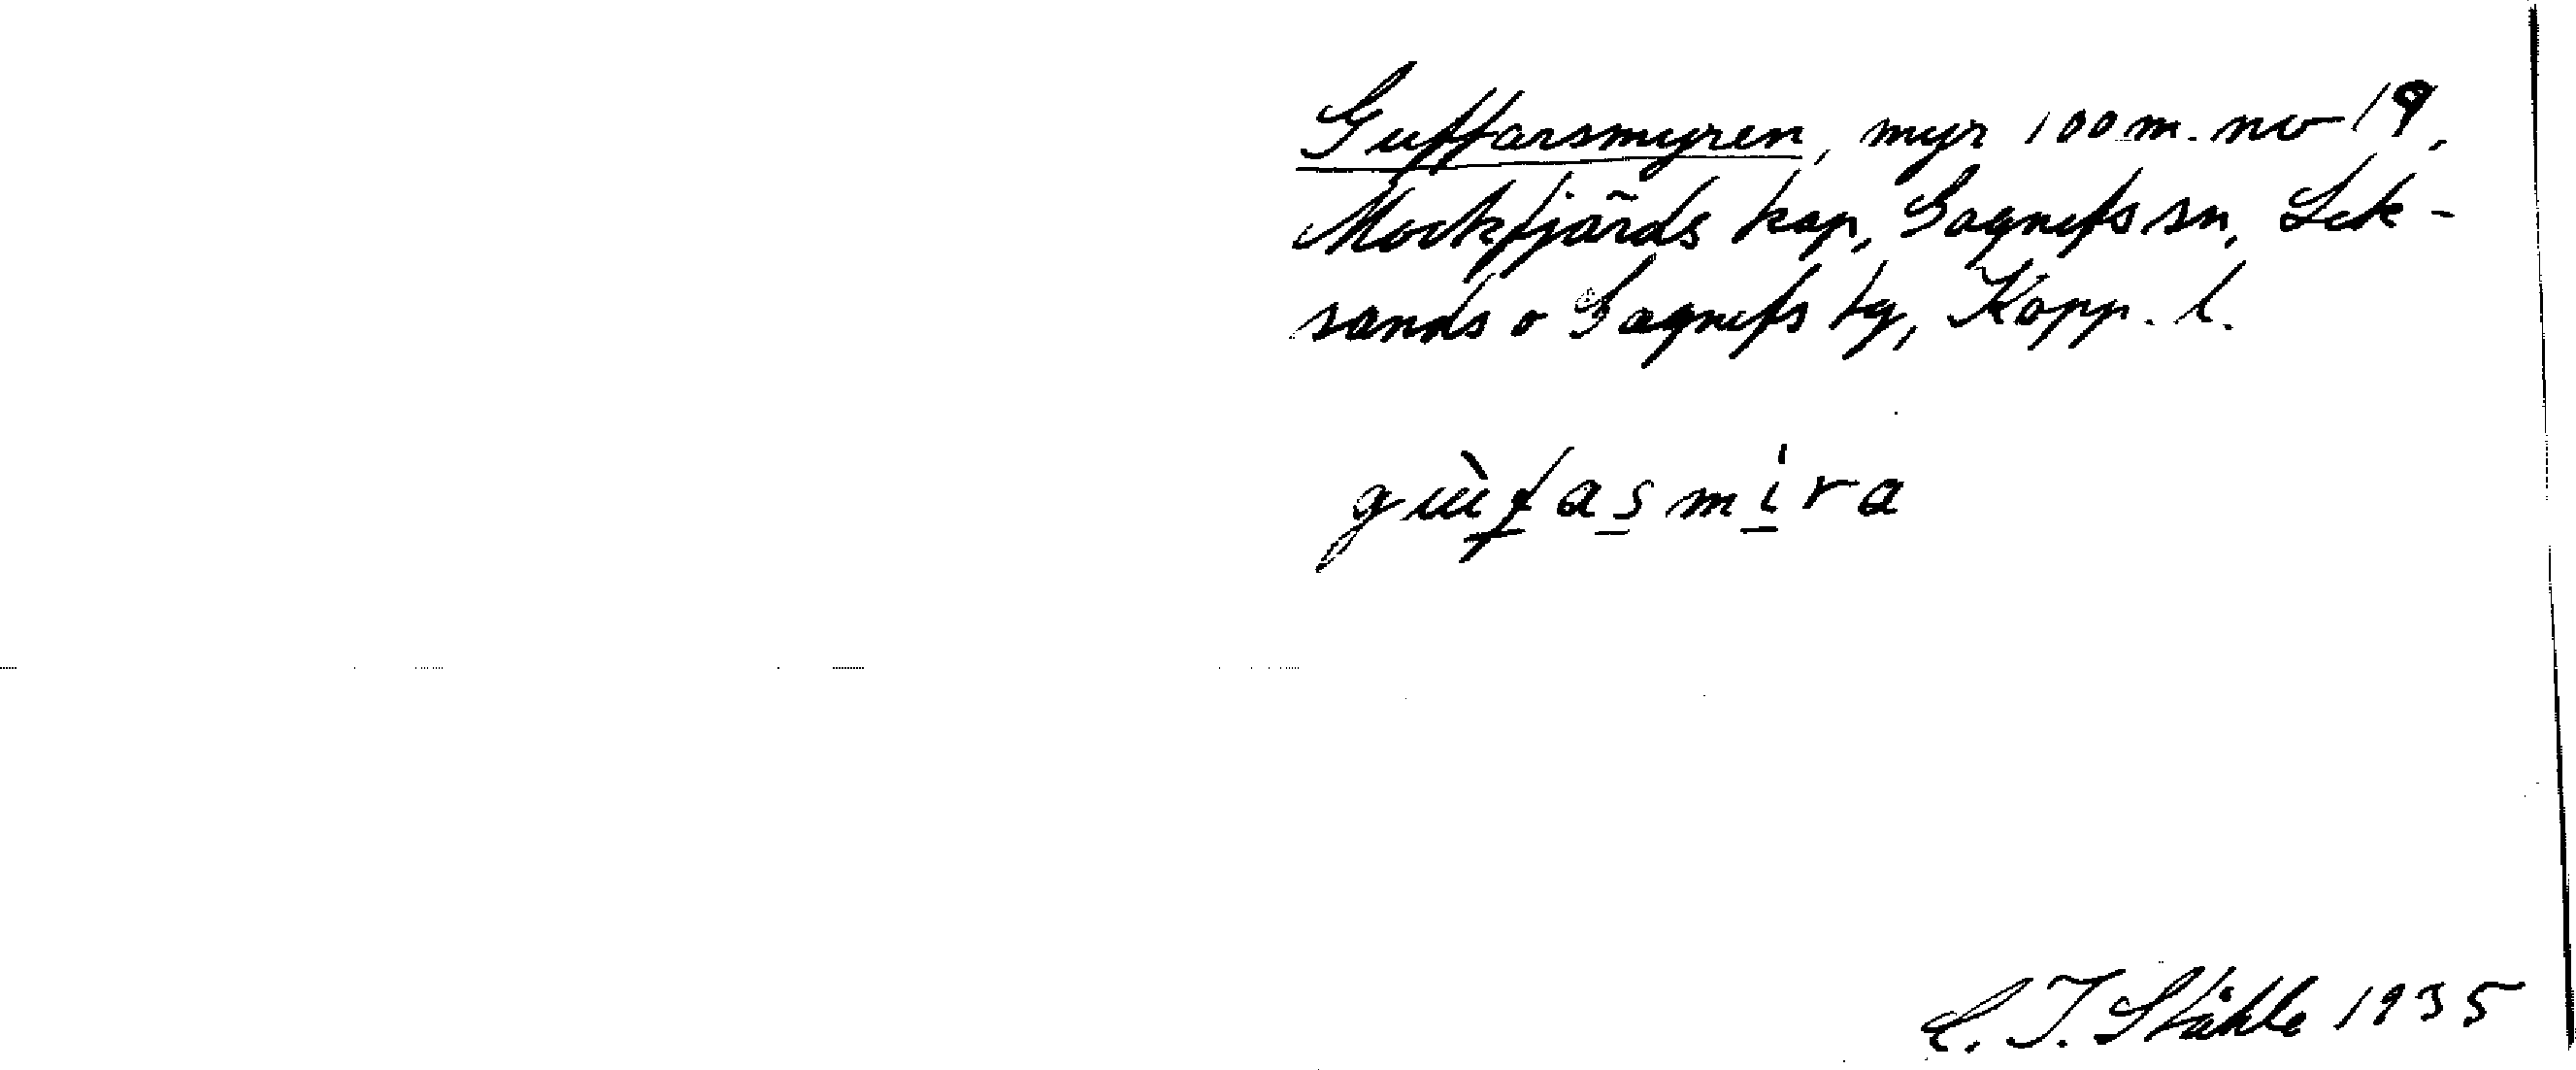 Guffarsmyren, myr 100 m. nv 19,
Mockfjärds kap, Gagnefs sn, Lek-
sands o Gagnefs tg, Kopp. l.
gùfasmira
C. I. Ståhle 1935